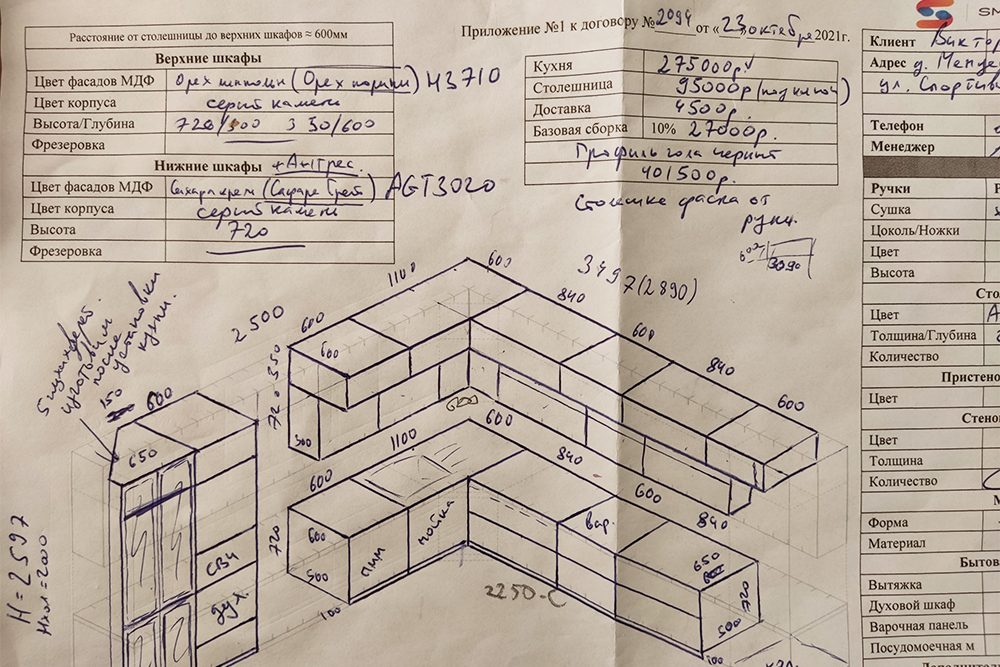 Расстояние от столешницы до верхних шкафов ≈ 600мм
Верхние шкафы
Цвет фасадов МДФ Орех (Орех) H3710
Цвет корпуса серый камень
Высота/Глубина 720/300 350/600
Фрезеровка
Нижние шкафы + Антрес.
Цвет фасадов МДФ Сахара крем (Сафари Грей) AGT3020
Цвет корпуса серый камень
Высота 720
Фрезеровка
Приложение №1 к договору № 2094 от «23» октября 2021г.
Кухня 275000р
Столешница 95000р (под ключ)
Доставка 4500р
Базовая сборка 10% 27000р.
Профиль гола черный
401500р.
Столешке фаска от
ручн.
600
3090
SM
Клиент Виктор
Адрес д. Менде
ул. Спортив
Телефон
Менеджер
Ручки
Сушка
Цоколь/Ножки
Цвет
Высота
Сто
Цвет
Толщина/Глубина
Количество
Пристено
Цвет
Стено
Цвет
Толщина
Количество
М
Форма
Материал
Бытов
Вытяжка
Духовой шкаф
Варочная панель
Посудомоечная м
Дополнительно
изготовим
после
установки
кухни.
150
600
650
СВЧ
Дух.
H = 2597
2500
600
1100
600
3497(2890)
840
600
840
600
350
720
600
300
600
1100
600
600
840
600
840
720
600
500
100
ПММ
мойка
Вар.
2250-С
650
720
500
100